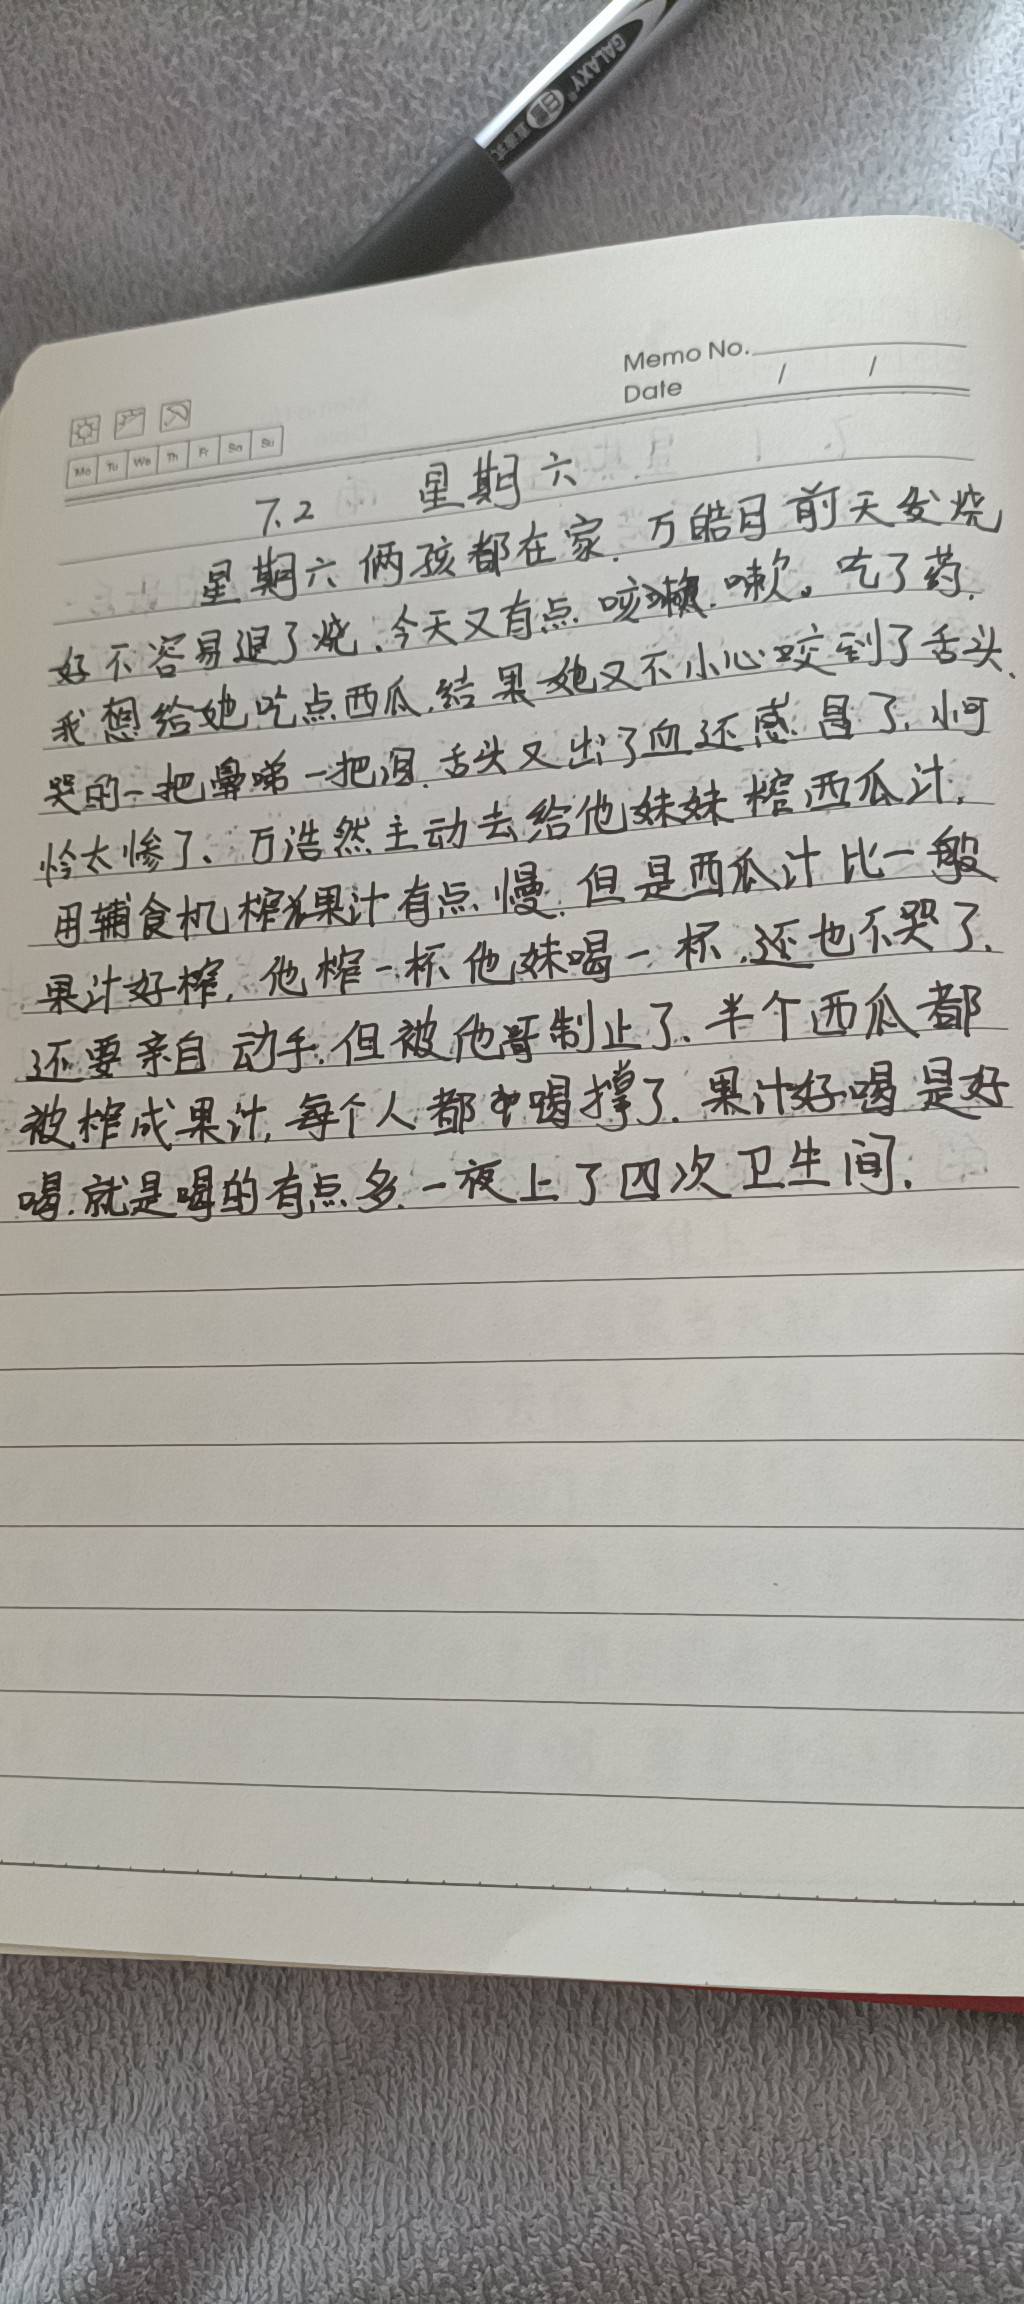 GALAXY
Memo No.
Date / /
Mo Tu We Th Fr Sa Su
7.2 星期六
星期六俩孩都在家.万皓月前天发烧
好不容易退了烧、今天又有点咳嗽.嗽。吃了药.
我想给她吃点西瓜.结果她又不小心咬到了舌头、
哭的一把鼻涕一把泪.舌头又出了血还感冒了.小可
怜太惨了、万浩然主动去给他妹妹榨西瓜汁.
用辅食机榨果汁有点慢.但是西瓜汁比一般
果汁好榨,他榨一杯、他妹喝一杯.还也不哭了.
还要亲自动手.但被他哥制止了、半个西瓜都
被榨成果汁,每个人都喝撑了.果汁好喝是好
喝.就是喝的有点多.一夜上了四次卫生间.